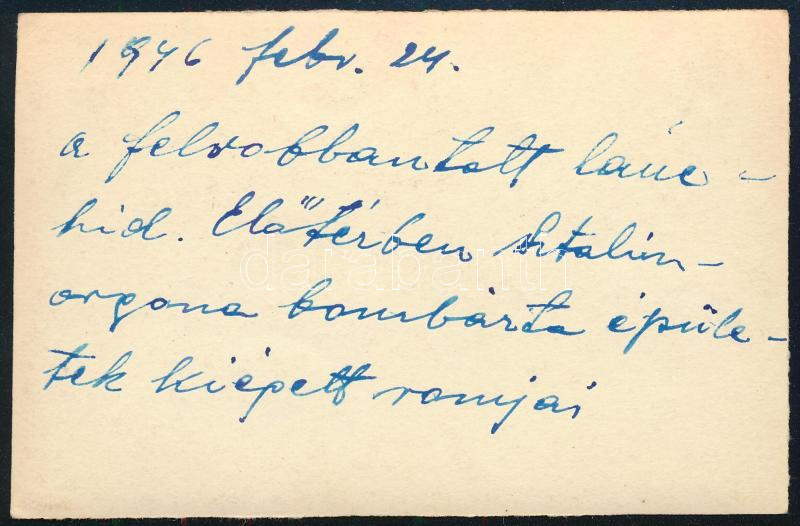 1946 febr. 24.
a felrobbantott lánc-
hid. Előtérben Sztalin-
orgona bombázta épüle-
tek kiégett romjai
darabanth